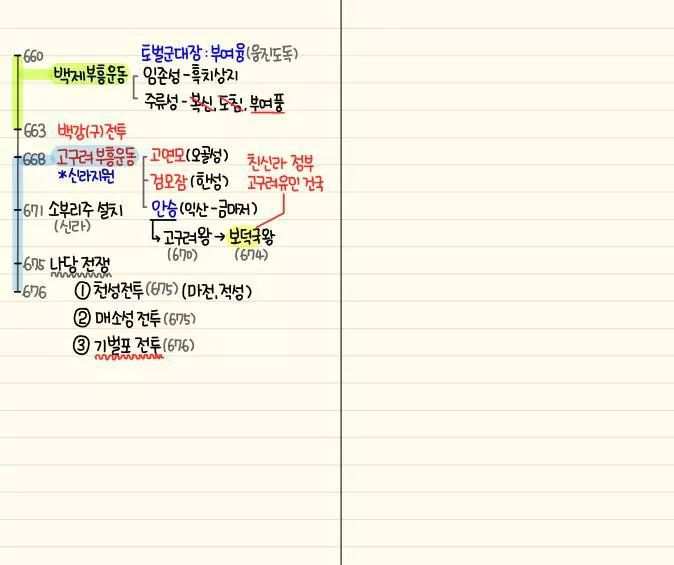 660 토벌군대장 : 부여융 (웅진도독)
백제부흥운동 임존성 - 흑치상지
주류성 - 복신, 도침, 부여풍
663 백강(구)전투
668 고구려 부흥운동 고연모 (오골성) 친신라 정부
*신라지원 검모잠 (한성) 고구려유민 건국
671 소부리주 설치 안승 (익산-금마저)
(신라) ↳ 고구려왕 → 보덕국왕
(670) (674)
675 나당 전쟁
676 ① 천성전투 (675) (마전, 적성)
② 매소성 전투 (675)
③ 기벌포 전투 (676)